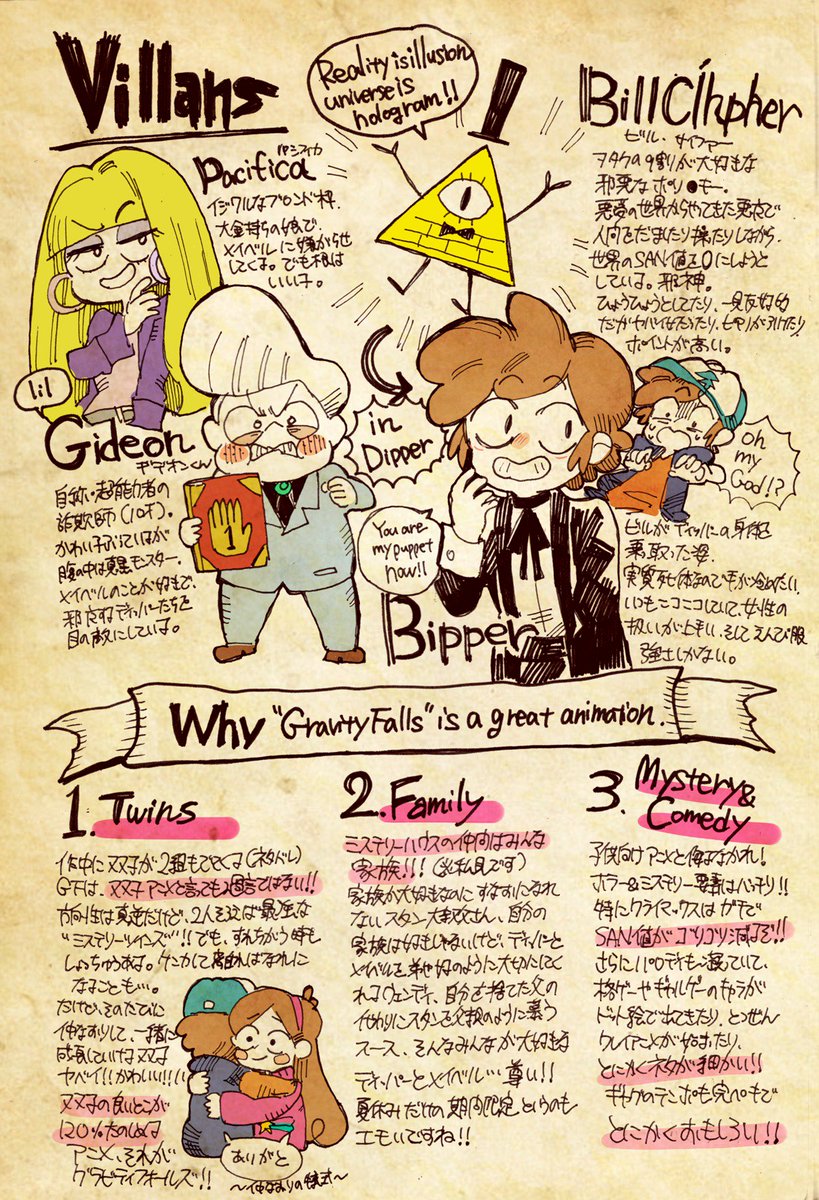 Villans
Reality is illusion
universe is
hologram!!
Pacifica
パシフィカ
イジワルなブロンド枠.
大金持ちの娘で.
メイベルに嫌がらせ
してくる。でも根は
いい子。
Bill Cihpher
ビル・サイファー
ヲタクの9割りが大好きな
邪悪なポリ●キー.
悪夢の世界からやってきた悪夜で
人間をだましたり操たりしながら.
世界のSAN値を0にしようと
している。邪神。
ひょうひょうとしてたり、一見友好的
だがヤバイ
ポイントが高い。
lil
Gideon
ギデオンくん
自称・超能力者の
詐欺師(10才)。
かわい子ぶっているが
腹の中は真黒モンスター.
メイベルのことが好きで.
邪魔するディッパーたちを
目の敵にしている。
1
in
Dipper
You are
my puppet
now!!
Bipper
oh
my
God!?
ビルがディッパーの身体を
乗取った姿.
実質死体なので手が冷めたい.
いつもニコニコしていて、女性の
扱いが上手い、そしてえんび服
強土しかない。
Why "Gravity Falls" is a great animation.
1. Twins
作中に双子が2組もでてくる(ネタバレ)
GFは、双子アニメと言っても過言ではない!!
方向性は真逆だけど、2人そろえば最強な
"ミステリーツインズ"!! でも、すれちがう時も
しょっちゅうある。ケンカして離ればなれに
なることも…。
だけど、そのたびに
仲なおりして、一緒に
成長していける双子
ヤバイ!! かわいい!!!!
双子の良いとこが
120%たのしめる
アニメ、それが
グラビティフォールズ!!
ありがと
〜仲なおりの儀式〜
2. Family
ミステリーハウスの仲間はみんな
家族!!!(※私見です)
家族が大好きなのにすなおになれ
ないスタン大叔父さん、自分の
家族は好きじゃないけど、ディッパーと
メイベルを弟や妹のように大切にしてく
れるウェンディ、自分を捨てた父の
代わりにスタンを父親のように慕う
スース、そんなみんなが大好きな
ディッパーとメイベル… 尊い!!
夏休みだけの期間限定というのも
エモいですね!!
3. Mystery &
Comedy
子供向けアニメと侮るなかれ!
ホラー&ミステリー要素はバッチリ!!
特にクライマックスはガチで
SAN値がゴリゴリ減るぞ!!
さらにパロディも混ぜていて、
格ゲーやギャルゲーのキャラが
ドット絵で出てきたり、とつぜん
クレイアニメが始まったり、
とにかくネタが細かい!!
ギャグのテンポも完ペキで
とにかくおもしろい!!